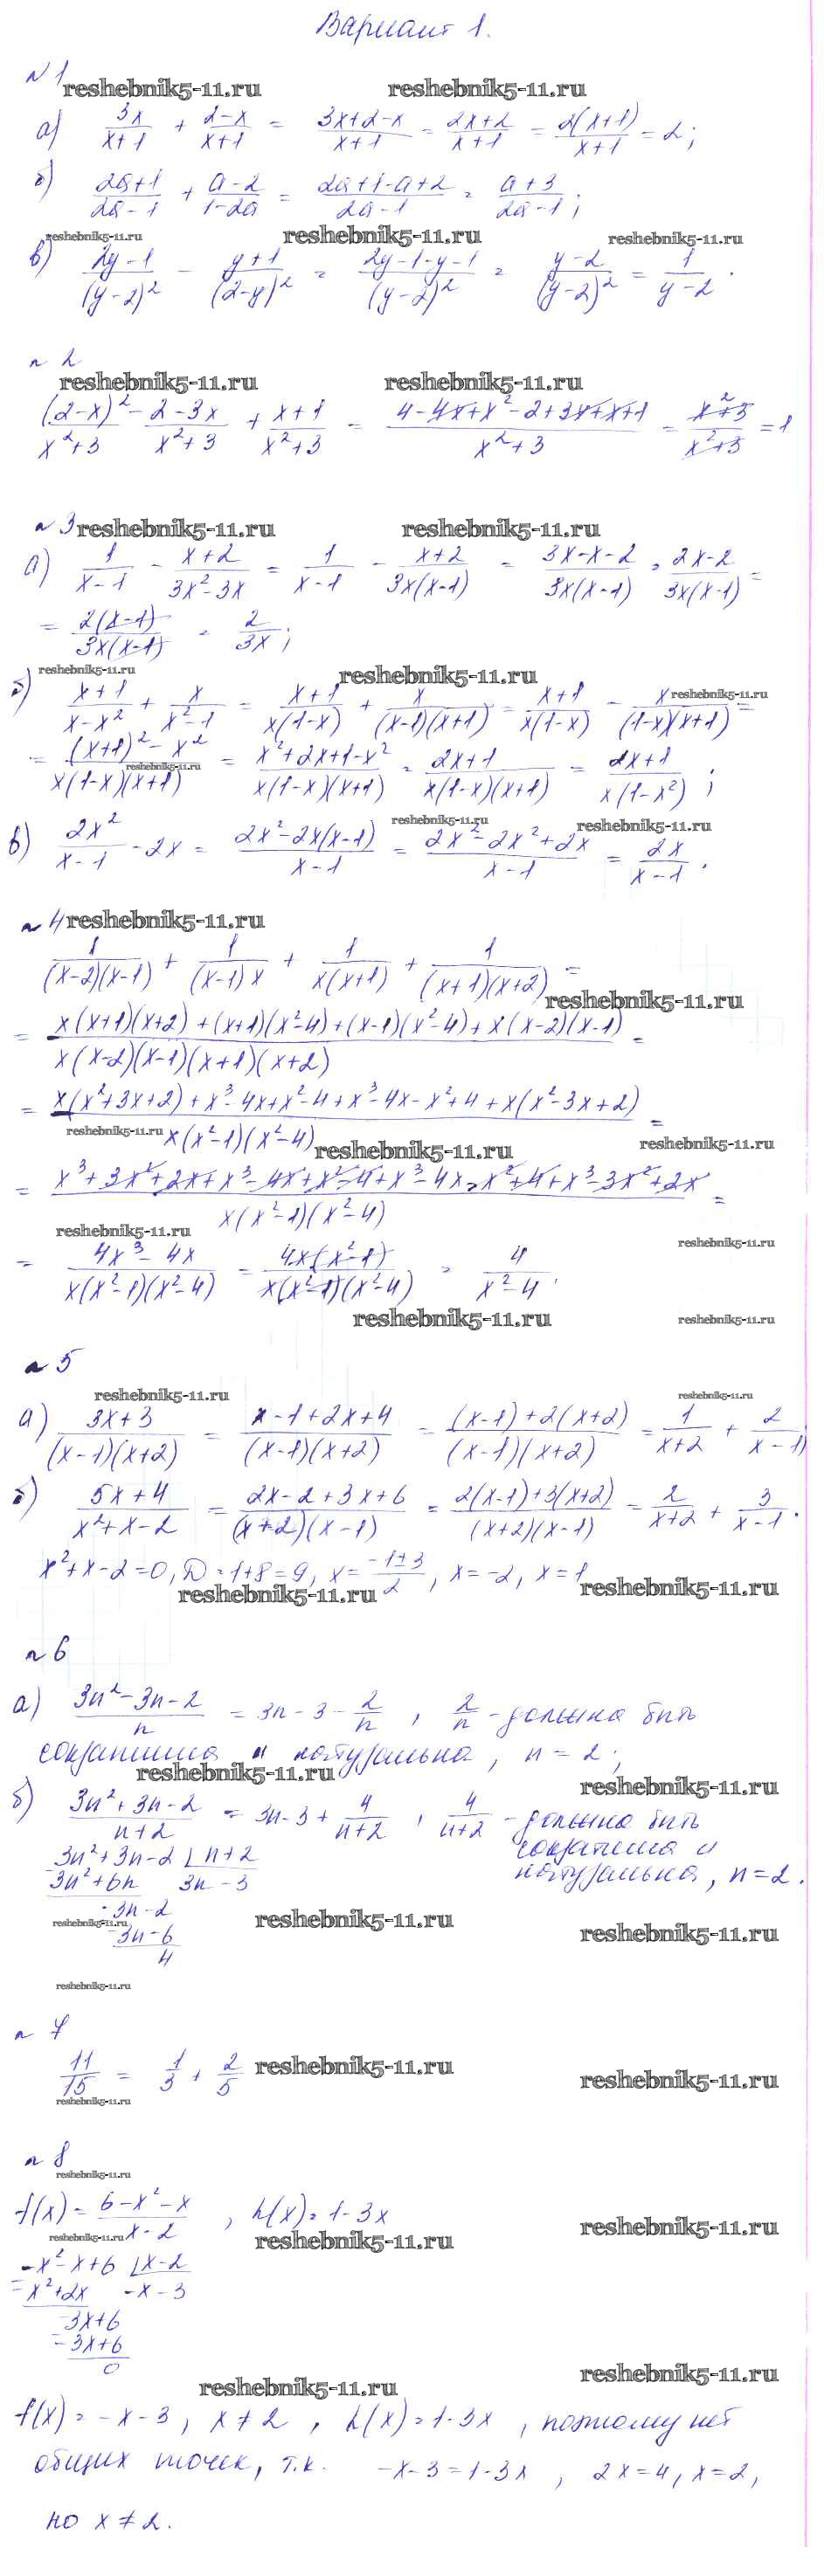 Вариант 1.
№1
reshebnik5-11.ru reshebnik5-11.ru
а) 3x/(x+1) + (2-x)/(x+1) = (3x+2-x)/(x+1) = (2x+2)/(x+1) = 2(x+1)/(x+1) = 2;
б) (2a+1)/(2a-1) + (a-2)/(1-2a) = (2a+1-a+2)/(2a-1) = (a+3)/(2a-1);
reshebnik5-11.ru reshebnik5-11.ru reshebnik5-11.ru
в) (2y-1)/(y-2)² - (y+1)/(2-y)² = (2y-1-y-1)/(y-2)² = (y-2)/(y-2)² = 1/(y-2).
№ 2
reshebnik5-11.ru reshebnik5-11.ru
(2-x)²/(x²+3) - (2-3x)/(x²+3) + (x+1)/(x²+3) = (4-4x+x²-2+3x+x+1)/(x²+3) = (x²+3)/(x²+3) = 1
№ 3 reshebnik5-11.ru reshebnik5-11.ru
а) 1/(x-1) - (x+2)/(3x²-3x) = 1/(x-1) - (x+2)/(3x(x-1)) = (3x-x-2)/(3x(x-1)) = (2x-2)/(3x(x-1)) =
= 2(x-1)/(3x(x-1)) = 2/(3x);
reshebnik5-11.ru reshebnik5-11.ru reshebnik5-11.ru
б) (x+1)/(x-x²) + x/(x²-1) = (x+1)/(x(1-x)) + x/((x-1)(x+1)) = (x+1)/(x(1-x)) - x/((1-x)(x+1)) =
= ((x+1)²-x²)/(x(1-x)(x+1)) = (x²+2x+1-x²)/(x(1-x)(x+1)) = (2x+1)/(x(1-x)(x+1)) = (2x+1)/(x(1-x²));
reshebnik5-11.ru
reshebnik5-11.ru reshebnik5-11.ru
в) 2x²/(x-1) - 2x = (2x²-2x(x-1))/(x-1) = (2x²-2x²+2x)/(x-1) = 2x/(x-1).
№ 4 reshebnik5-11.ru
1/((x-2)(x-1)) + 1/((x-1)x) + 1/(x(x+1)) + 1/((x+1)(x+2)) =
reshebnik5-11.ru
= (x(x+1)(x+2)+(x+1)(x²-4)+(x-1)(x²-4)+x(x-2)(x-1))/(x(x-2)(x-1)(x+1)(x+2)) =
= (x(x²+3x+2)+x³-4x+x²-4+x³-4x-x²+4+x(x²-3x+2))/(x(x²-1)(x²-4)) =
reshebnik5-11.ru reshebnik5-11.ru reshebnik5-11.ru
= (x³+3x²+2x+x³-4x+x²-4+x³-4x-x²+4+x³-3x²+2x)/(x(x²-1)(x²-4)) =
reshebnik5-11.ru reshebnik5-11.ru
= (4x³-4x)/(x(x²-1)(x²-4)) = 4x(x²-1)/(x(x²-1)(x²-4)) = 4/(x²-4).
reshebnik5-11.ru reshebnik5-11.ru
№ 5
reshebnik5-11.ru reshebnik5-11.ru
а) (3x+3)/((x-1)(x+2)) = (x-1+2x+4)/((x-1)(x+2)) = ((x-1)+2(x+2))/((x-1)(x+2)) = 1/(x+2) + 2/(x-1);
б) (5x+4)/(x²+x-2) = (2x-2+3x+6)/((x+2)(x-1)) = (2(x-1)+3(x+2))/((x+2)(x-1)) = 2/(x+2) + 3/(x-1).
x²+x-2=0, D=1+8=9, x=(-1±3)/2, x=-2, x=1
reshebnik5-11.ru reshebnik5-11.ru
№ 6
а) (3n²-3n-2)/n = 3n-3-2/n, 2/n - должна быть
сократима и натуральна, n=2;
reshebnik5-11.ru reshebnik5-11.ru
б) (3n²+3n-2)/(n+2) = 3n-3+4/(n+2), 4/(n+2) - должна быть
сократима и
натуральна, n=2.
3n²+3n-2 | n+2
3n²+6n 3n-3
-3n-2
reshebnik5-11.ru reshebnik5-11.ru reshebnik5-11.ru
-3n-6
4
reshebnik5-11.ru
№ 7
11/15 = 1/3 + 2/5 reshebnik5-11.ru reshebnik5-11.ru
reshebnik5-11.ru
№ 8
reshebnik5-11.ru
f(x) = (6-x²-x)/(x-2), h(x)=1-3x
reshebnik5-11.ru reshebnik5-11.ru reshebnik5-11.ru
-x²-x+6 | x-2
-x²+2x -x-3
-3x+6
-3x+6
0
reshebnik5-11.ru reshebnik5-11.ru
f(x)=-x-3, x≠2, h(x)=1-3x, поэтому нет
общих точек, т.к. -x-3=1-3x, 2x=4, x=2,
но x≠2.